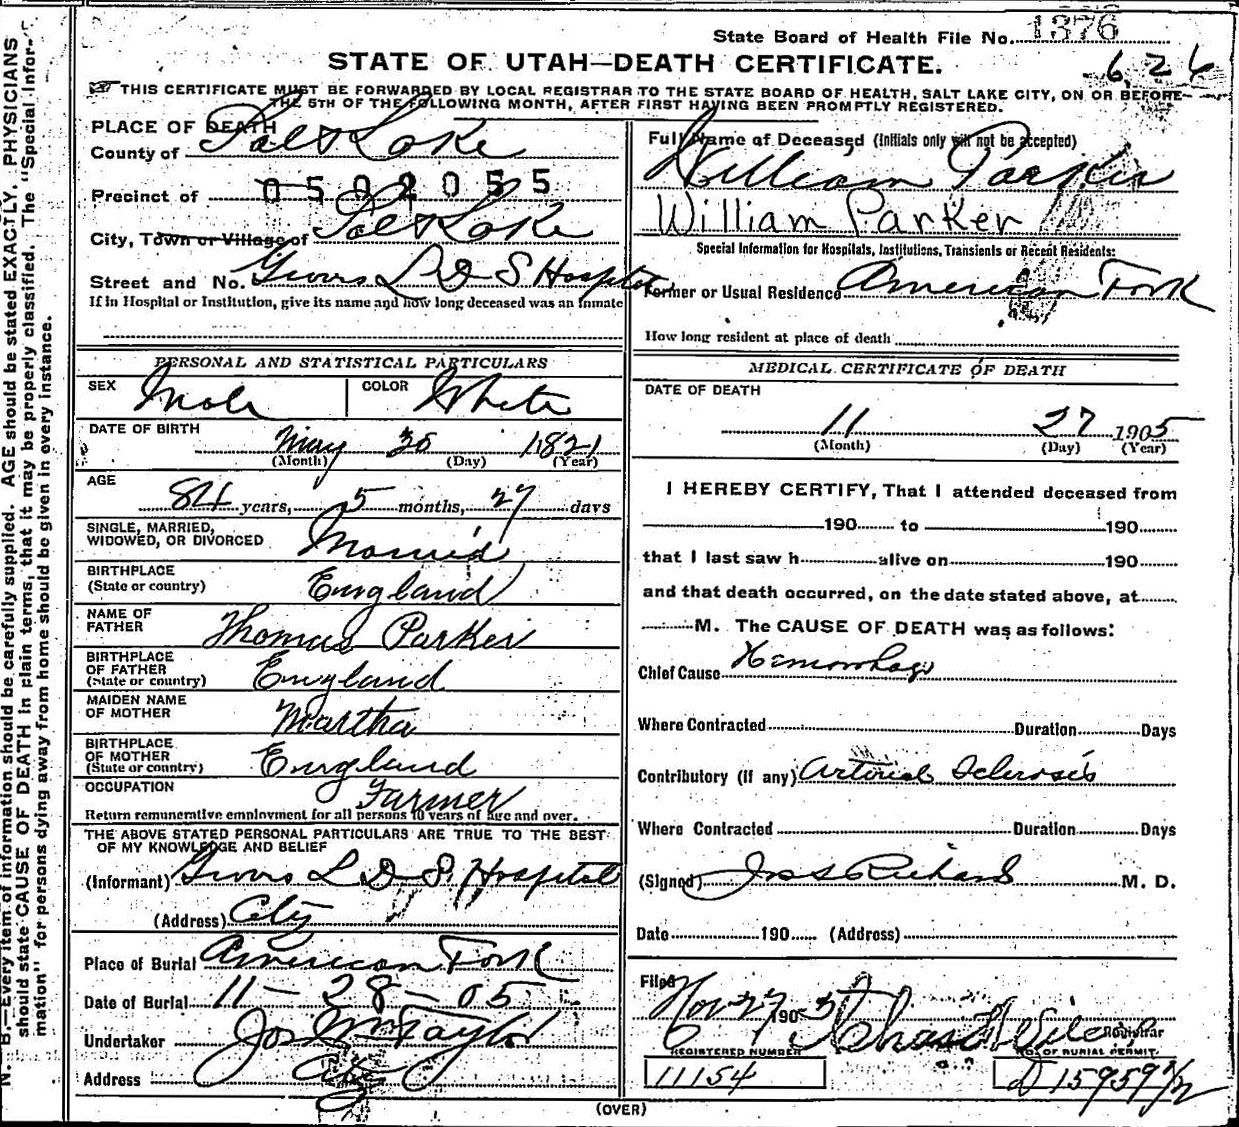 State Board of Health File No. 1376
STATE OF UTAH—DEATH CERTIFICATE.
626
THIS CERTIFICATE MUST BE FORWARDED BY LOCAL REGISTRAR TO THE STATE BOARD OF HEALTH, SALT LAKE CITY, ON OR BEFORE
THE 5TH OF THE FOLLOWING MONTH, AFTER FIRST HAVING BEEN PROMPTLY REGISTERED.
N. B.—Every item of information should be carefully supplied. AGE should be stated EXACTLY. PHYSICIANS
should state CAUSE OF DEATH in plain terms, that it may be properly classified. The "Special Infor-
mation" for persons dying away from home should be given in every instance.
PLACE OF DEATH
County of Salt Lake
Precinct of 0502055
City, Town or Village of Salt Lake
Street and No. Groves L D S Hospital
If in Hospital or Institution, give its name and how long deceased was an inmate
PERSONAL AND STATISTICAL PARTICULARS
SEX Male COLOR White
DATE OF BIRTH May 30 1821
(Month) (Day) (Year)
AGE 84 years, 5 months, 27 days
SINGLE, MARRIED,
WIDOWED, OR DIVORCED Married
BIRTHPLACE
(State or country) England
NAME OF
FATHER Thomas Parker
BIRTHPLACE
OF FATHER
(State or country) England
MAIDEN NAME
OF MOTHER Martha
BIRTHPLACE
OF MOTHER
(State or country) England
OCCUPATION Farmer
Return remunerative employment for all persons 10 years of age and over.
THE ABOVE STATED PERSONAL PARTICULARS ARE TRUE TO THE BEST
OF MY KNOWLEDGE AND BELIEF
(Informant) Groves L D S. Hospital
(Address) City
Place of Burial American Fork
Date of Burial 11-28-05
Undertaker Jos Wm Taylor
Address City
Full Name of Deceased (Initials only will not be accepted)
William Parker
William Parker
Special Information for Hospitals, Institutions, Transients or Recent Residents:
Former or Usual Residence American Fork
How long resident at place of death
MEDICAL CERTIFICATE OF DEATH
DATE OF DEATH
11 27 1905
(Month) (Day) (Year)
I HEREBY CERTIFY, That I attended deceased from
190 to 190
that I last saw h alive on 190
and that death occurred, on the date stated above, at
M. The CAUSE OF DEATH was as follows:
Chief Cause Hemorrhage
Where Contracted Duration Days
Contributory (if any) Arterial Sclerosis
Where Contracted Duration Days
(Signed) Jos S Richards M. D.
Date 190 (Address)
Filed Nov 27 1905 Registrar
REGISTERED NUMBER NO. OF BURIAL PERMIT.
11154 D 15959 1/2
(OVER)